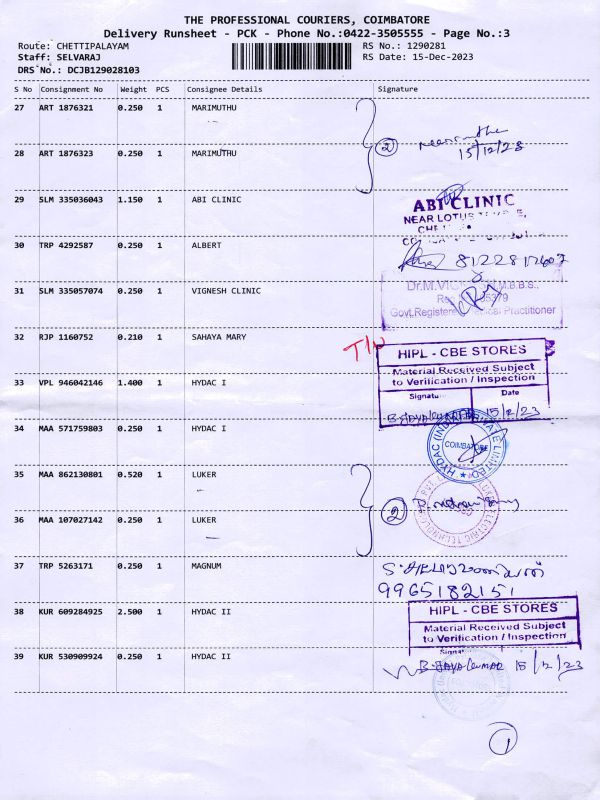 THE PROFESSIONAL COURIERS, COIMBATORE
Delivery Runsheet - PCK - Phone No.:0422-3505555 - Page No.:3
Route: CHETTIPALAYAM RS No.: 1290281
Staff: SELVARAJ RS Date: 15-Dec-2023
DRS No.: DCJB129028103
S No Consignment No Weight PCS Consignee Details Signature
27 ART 1876321 0.250 1 MARIMUTHU
2
15/12/23
28 ART 1876323 0.250 1 MARIMUTHU
29 SLM 335036043 1.150 1 ABI CLINIC
ABI CLINIC
NEAR LOTUS
30 TRP 4292587 0.250 1 ALBERT
31 SLM 335057074 0.250 1 VIGNESH CLINIC
M.B.B.S.,
Practitioner
32 RJP 1160752 0.210 1 SAHAYA MARY
HIPL - CBE STORES
Material Received Subject
to Verification / Inspection
33 VPL 946042146 1.400 1 HYDAC I
Date
15/12/23
34 MAA 571759803 0.250 1 HYDAC I
COIMBATORE
35 MAA 862130801 0.520 1 LUKER
2
36 MAA 107027142 0.250 1 LUKER
37 TRP 5263171 0.250 1 MAGNUM
9965182151
38 KUR 609284925 2.500 1 HYDAC II
HIPL - CBE STORES
Material Received Subject
to Verification / Inspection
39 KUR 530909924 0.250 1 HYDAC II
15/12/23
1